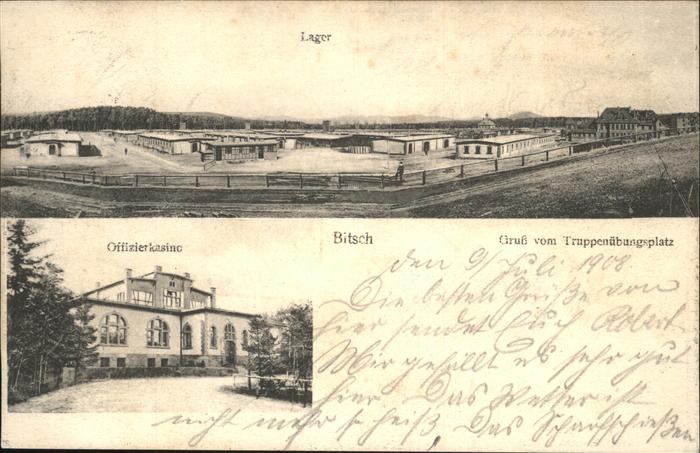 Lager
Offizierkasino
Bitsch
Gruß vom Truppenübungsplatz
den 9/Juli 1908.
Die besten Grüße von
hier sendet Euch Robert.
Mir gefällt es sehr gut
hier. Das Wetter ist
nicht mehr so heiß. Das Scharfschießen